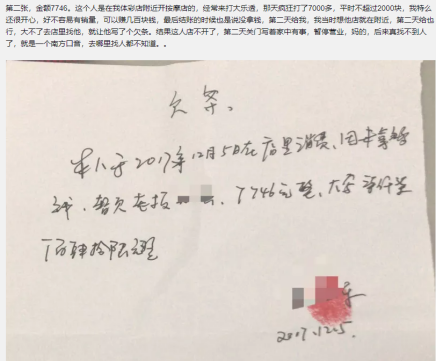 第二张，金额7746。这个人是在我体彩店附近开按摩店的，经常来打大乐透，那天疯狂打了7000多，平时不超过2000块，我特么
还很开心，好不容易有销量，可以赚几百块钱，最后结账的时候也是说没拿钱，第二天给我，我当时想他店就在附近，第二天给也
行，大不了去店里找他，就让他写了个欠条。结果这人店不开了，第二天关门写着家中有事，暂停营业，妈的，后来真找不到人
了，就是一个南方口音，去哪里找人都不知道。。
欠条、
本人于2017年12月5日在店里消费、因未拿够
钱、暂欠老板 7746元整、大写柒仟
百肆拾陆元整
2017.12.5.